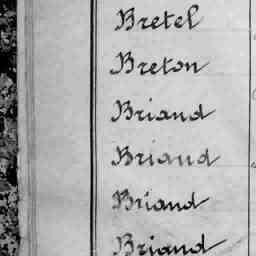 Bretel
Breton
Briand
Briand
Briand
Briand